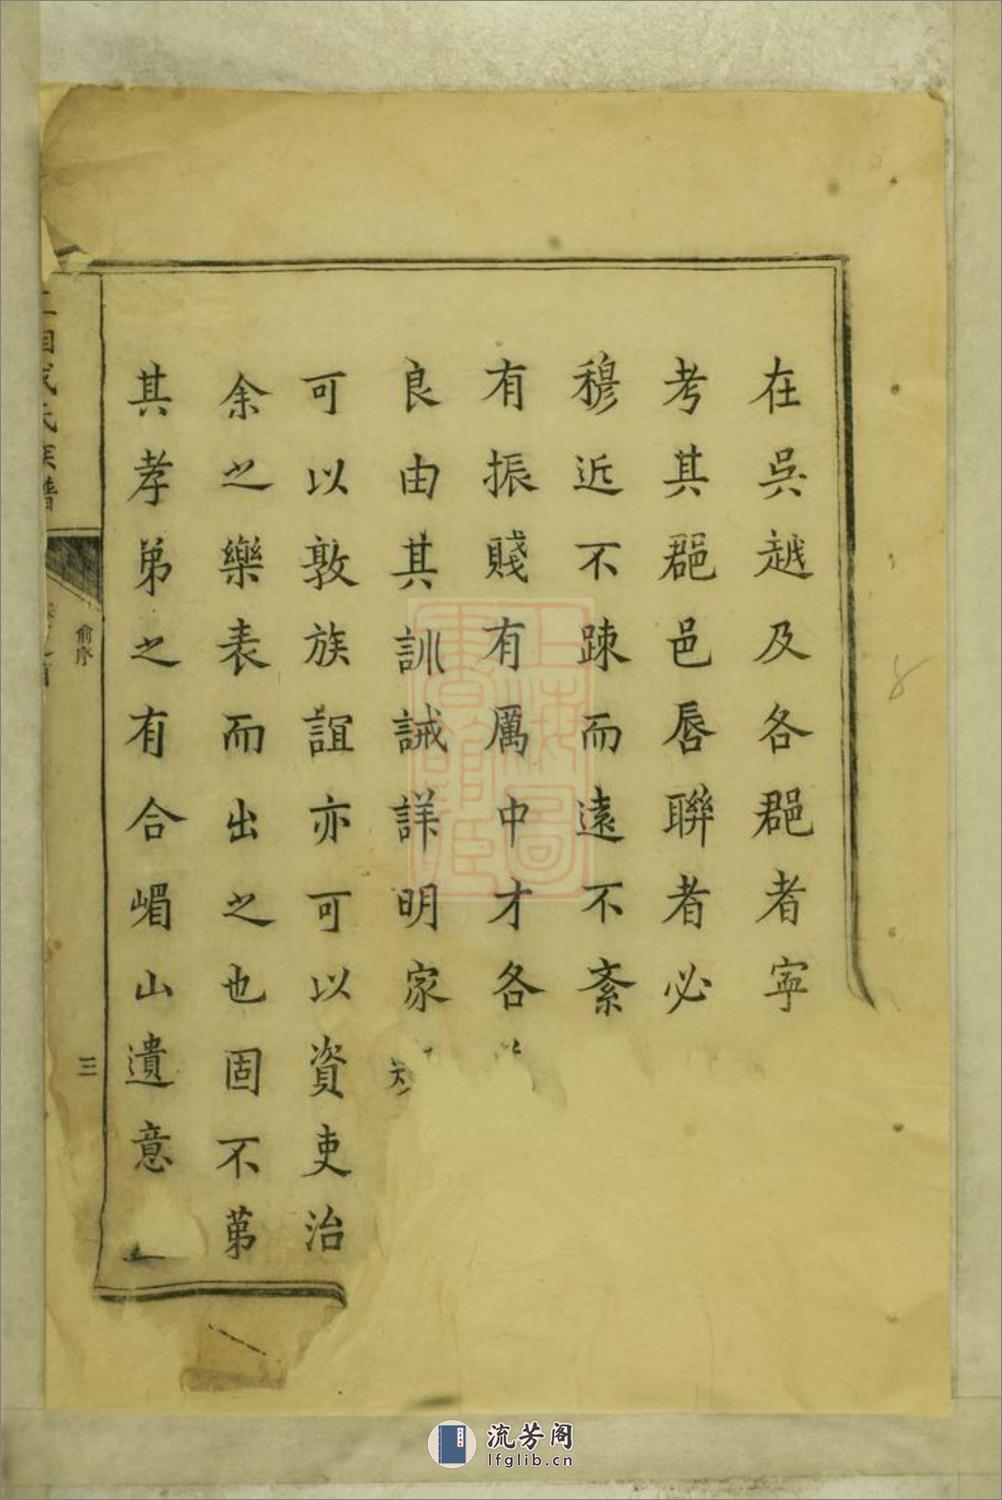 在吳越及各郡者寜
考其郡邑唇聯者必
穆近不踈而遠不紊
有振賤有厲中才各
良由其訓誡詳明家
可以敦族誼亦可以資吏治
余之樂表而出之也固不苐
其孝弟之有合嵋山遺意
氏族譜
俞序
三
上海圖書館藏
流芳阁
lfglib.cn